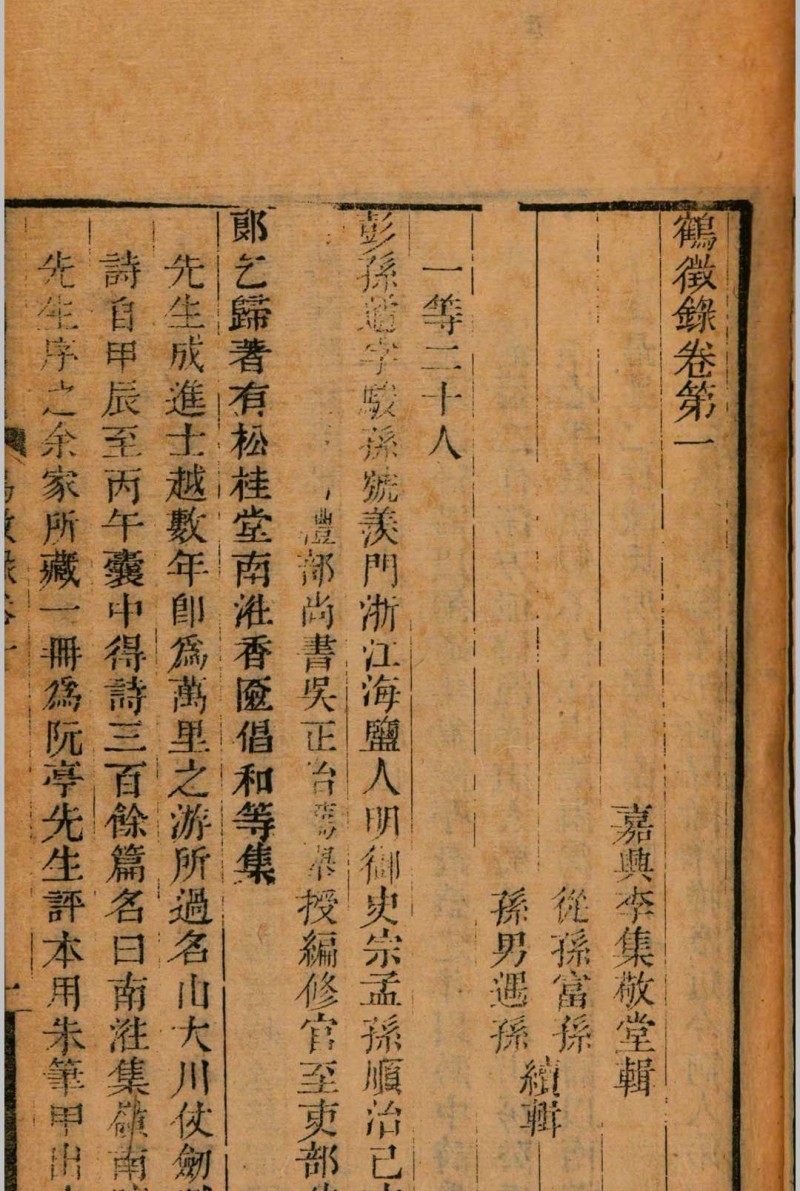 鶴徵錄卷第一
嘉興李集敬堂輯
從孫富孫
孫男遇孫
續輯
一等二十人
彭孫遹字駿孫號羨門浙江海鹽人明御史宗孟孫順治己
禮部尚書吳正治薦舉授編修官至吏部
郞乞歸著有松桂堂南淮香匳倡和等集
先生成進士越數年卽爲萬里之游所過名山大川仗劒
詩自甲辰至丙午囊中得詩三百餘篇名曰南淮集嶺南
先生序之余家所藏一冊爲阮亭先生評本用朱筆甲出